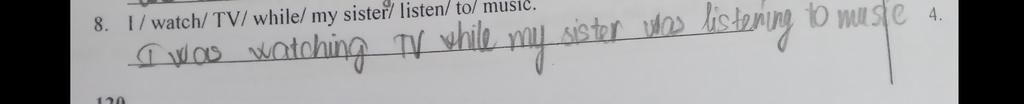 8. I / watch/ TV/ while/ my sister/ listen/ to/ music. 4.
I was watching TV while my sister was listening to music
120